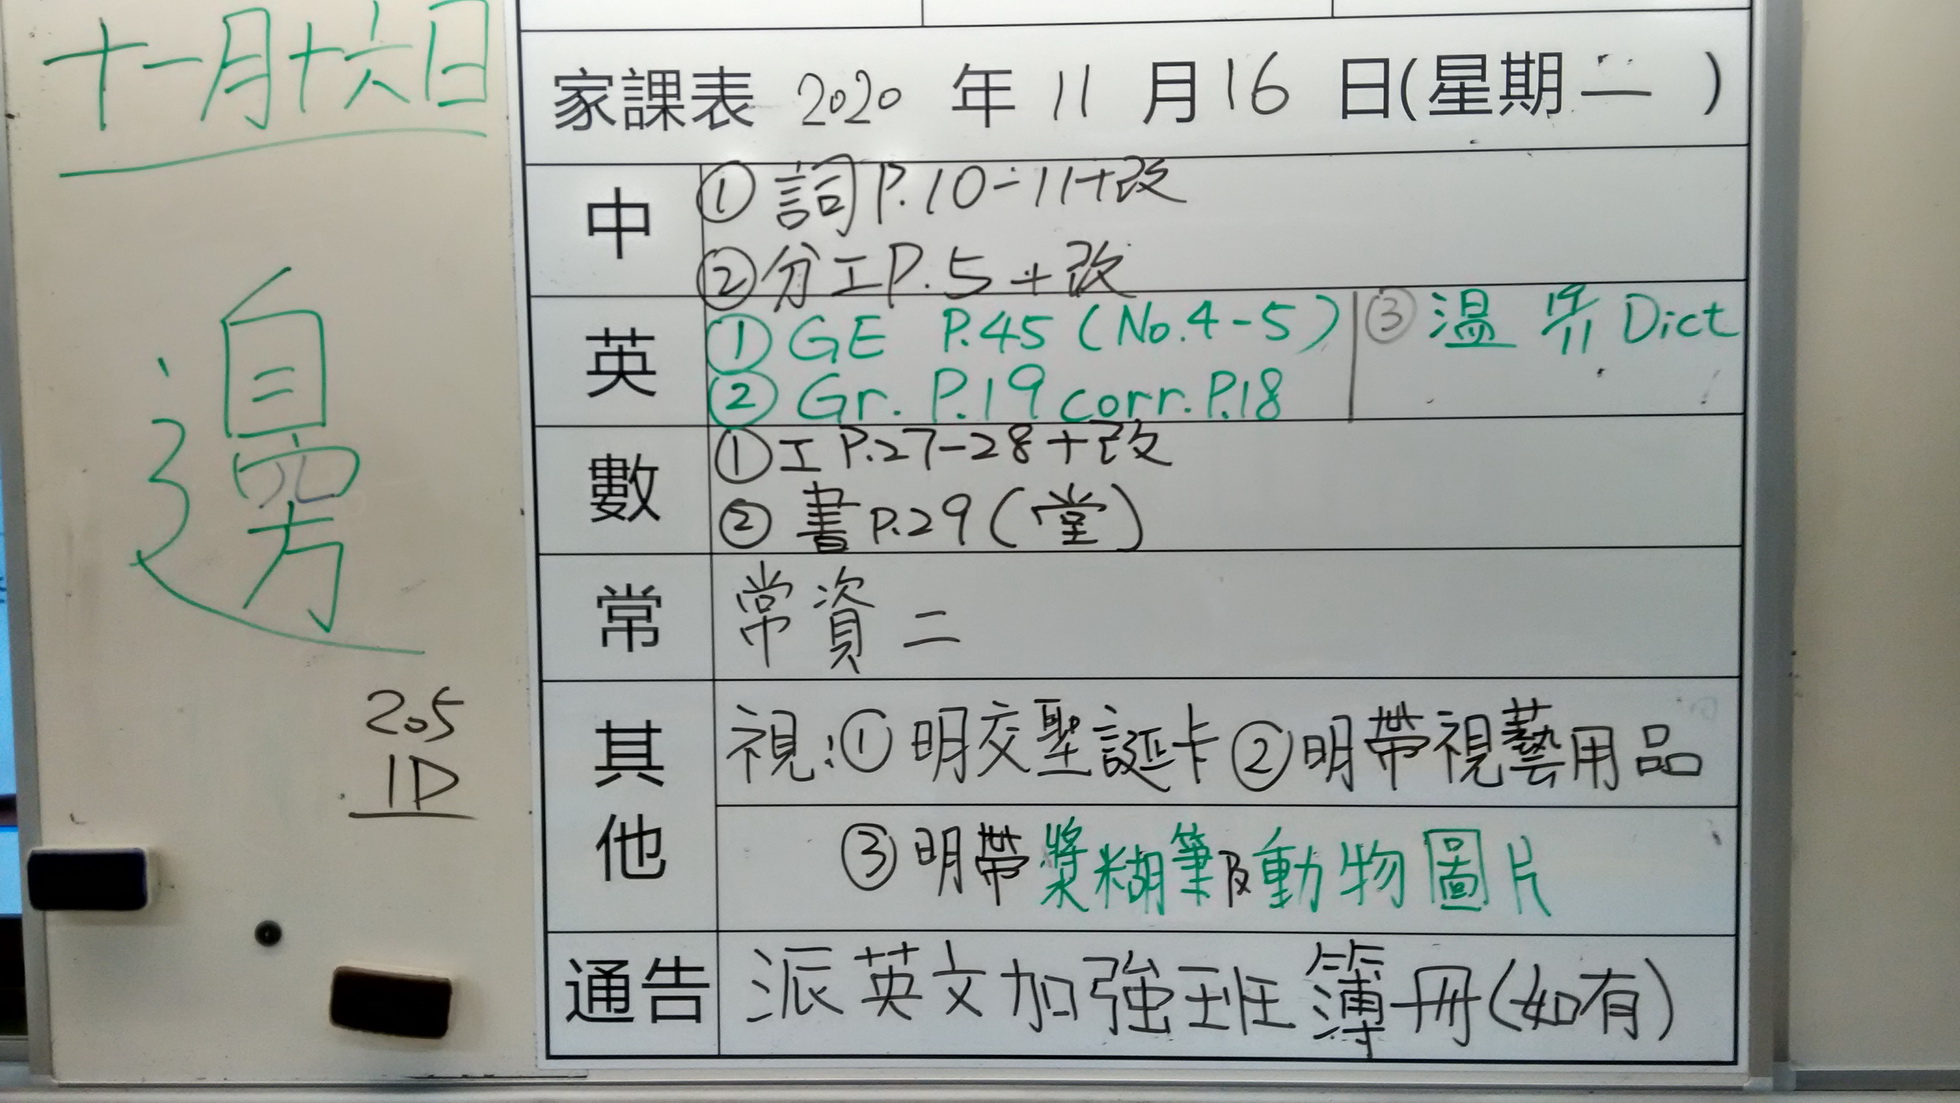 十一月十六日
邊
205
1D
家課表 2020 年 11 月 16 日(星期二 )
中
① 詞 P.10-11+改
② 分工 P.5 + 改
英
① GE P.45 (No.4-5)
③ 溫 Dict
② Gr. P.19 corr. P.18
數
① 工 P.27-28+改
② 書 P.29 (堂)
常
常資二
其他
視:① 明交聖誕卡 ② 明帶視藝用品
③ 明帶漿糊筆及動物圖片
通告
派英文加強班簿冊(如有)